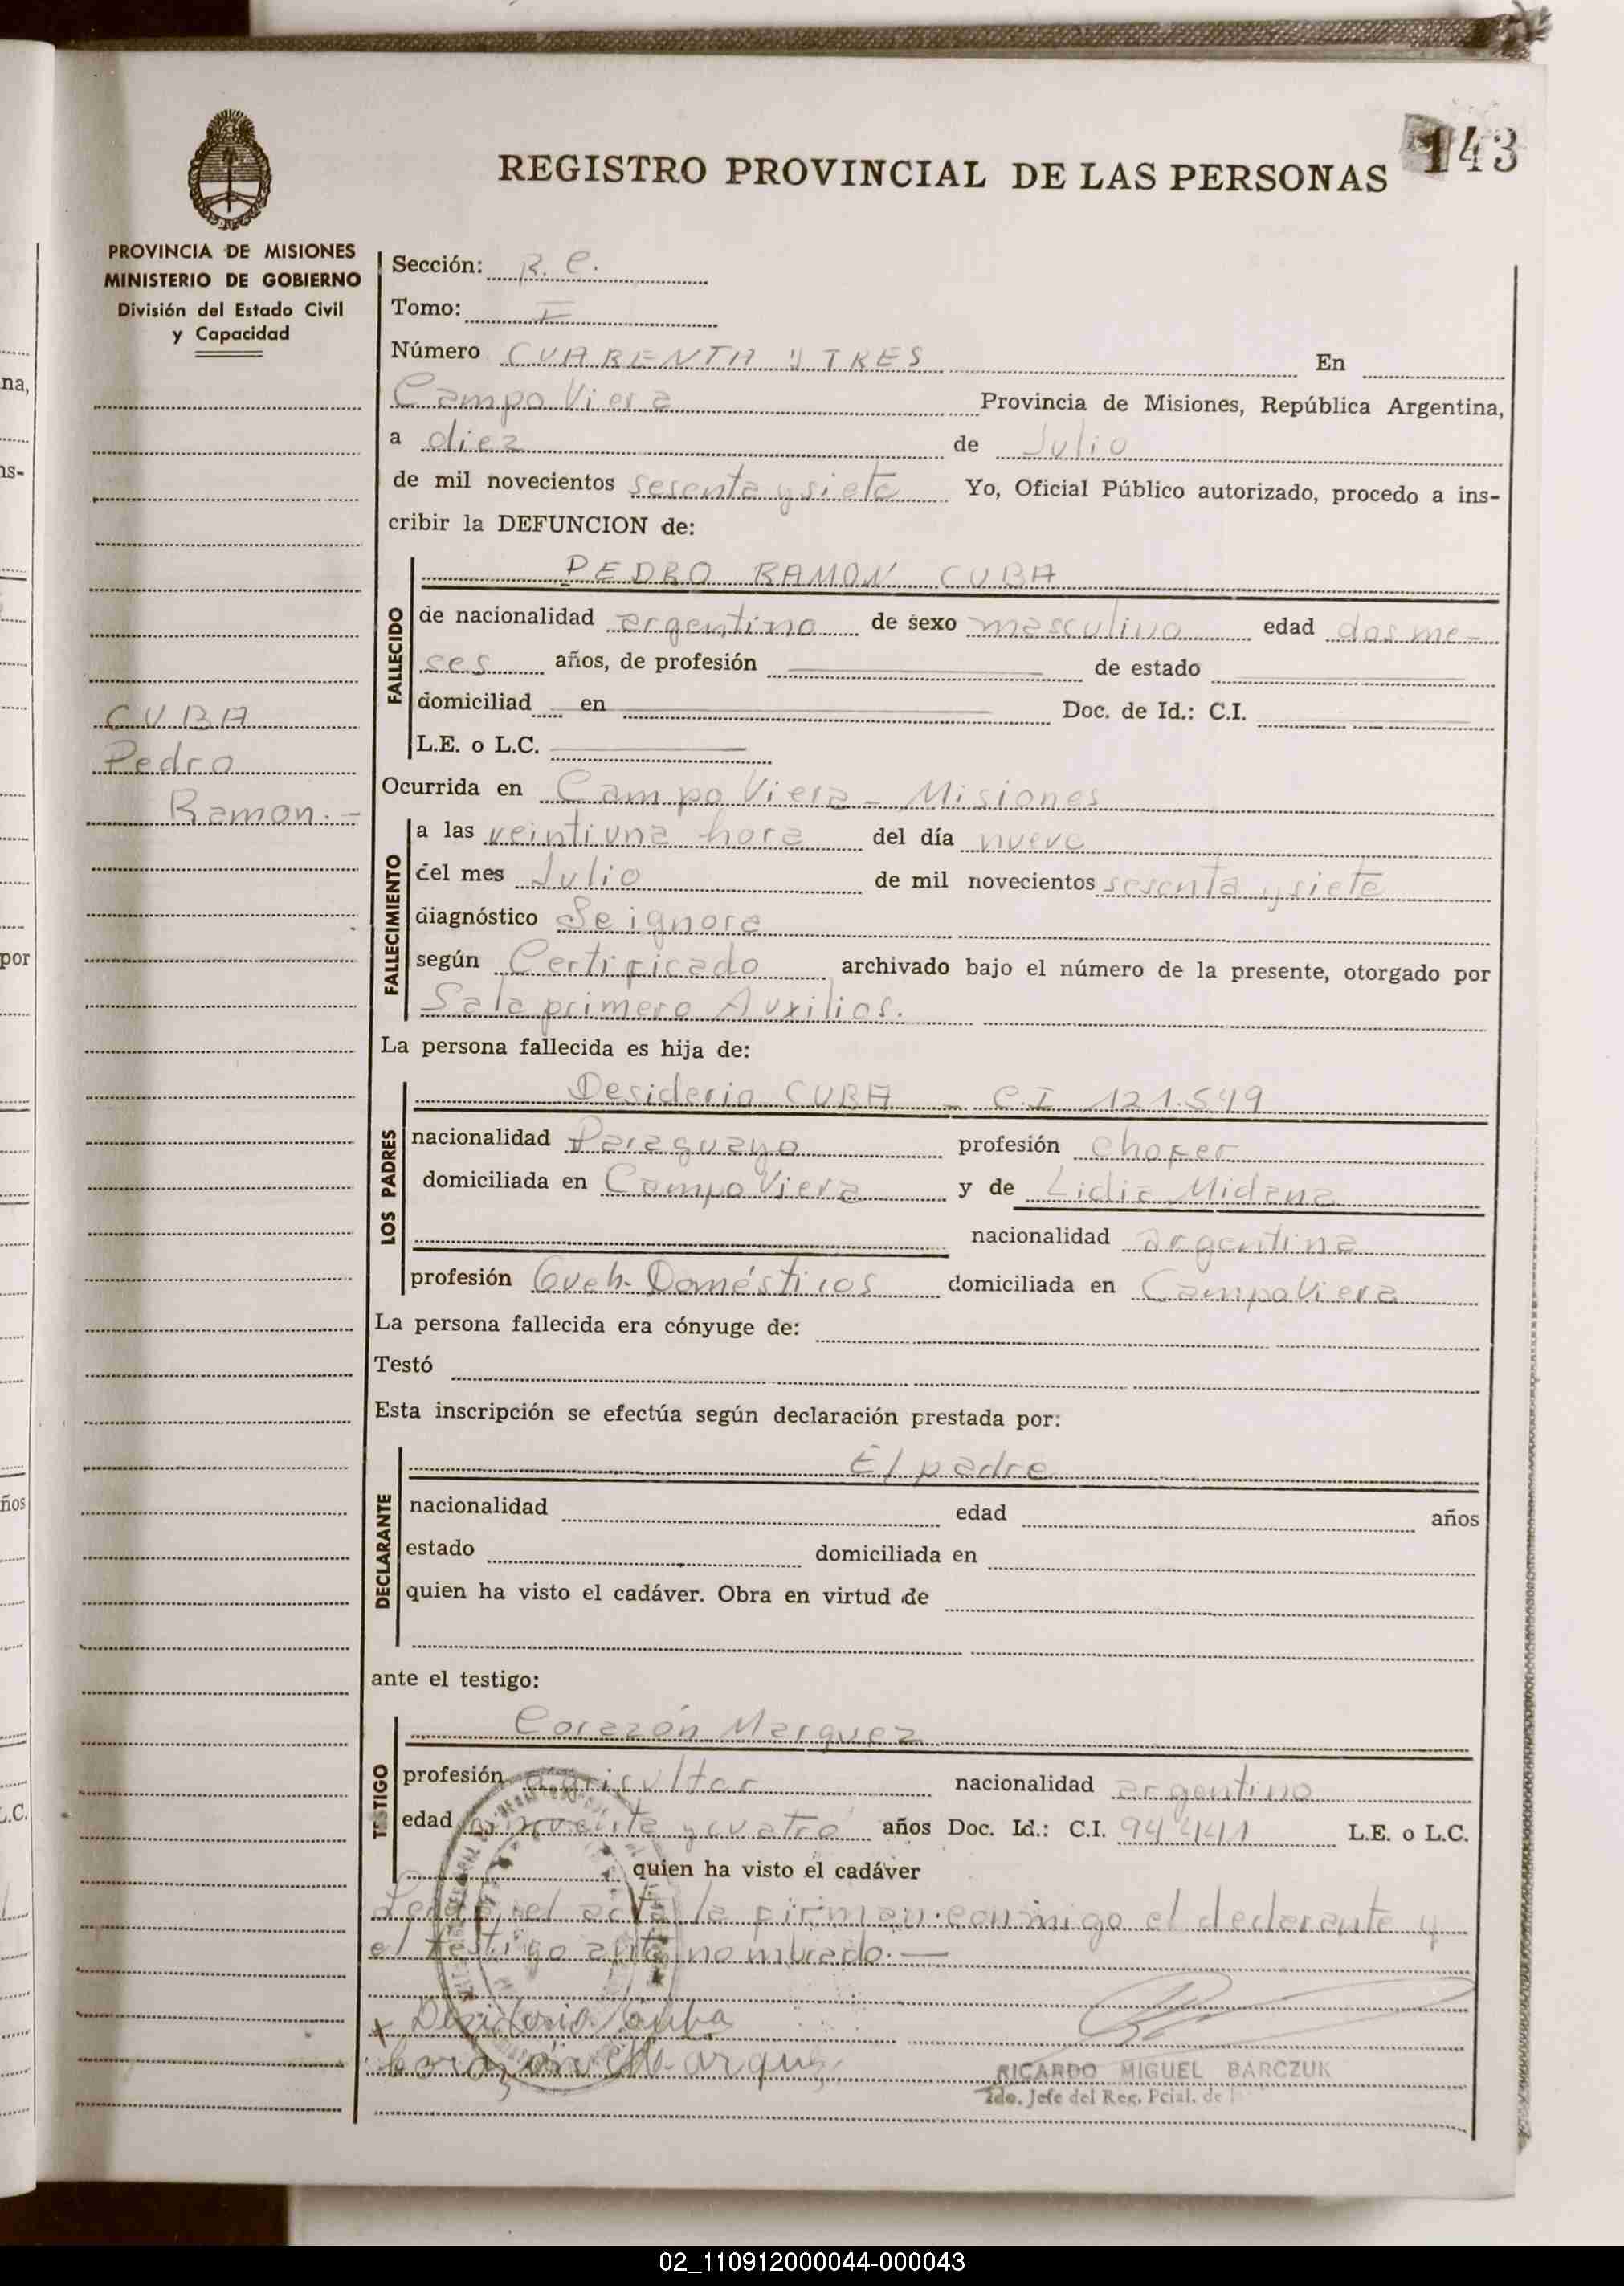 143
REGISTRO PROVINCIAL DE LAS PERSONAS
PROVINCIA DE MISIONES
MINISTERIO DE GOBIERNO
División del Estado Civil
y Capacidad
CUBA
Pedro
Ramon.-
Sección: R. C.
Tomo: I
Número CUARENTA Y TRES En
Campo Viera Provincia de Misiones, República Argentina,
a diez de Julio
de mil novecientos sesenta y siete Yo, Oficial Público autorizado, procedo a ins-
cribir la DEFUNCION de:
FALLECIDO
PEDRO RAMON CUBA
de nacionalidad argentino de sexo masculino edad dos me-
ses años, de profesión de estado
domiciliad en Doc. de Id.: C.I.
L.E. o L.C.
Ocurrida en Campo Viera - Misiones
FALLECIMIENTO
a las veintiuna hora del día nueve
del mes Julio de mil novecientos sesenta y siete
diagnóstico Se ignora
según Certificado archivado bajo el número de la presente, otorgado por
Sala primero Auxilios.
La persona fallecida es hija de:
LOS PADRES
Desiderio CUBA - C.I 121.549
nacionalidad Paraguayo profesión chofer
domiciliada en Campo Viera y de Lidia Midana
nacionalidad argentina
profesión Queh. Domésticos domiciliada en Campo Viera
La persona fallecida era cónyuge de:
Testó
Esta inscripción se efectúa según declaración prestada por:
DECLARANTE
El padre
nacionalidad edad años
estado domiciliada en
quien ha visto el cadáver. Obra en virtud de
ante el testigo:
TESTIGO
Corazón Marquez
profesión agricultor nacionalidad argentino
edad cincuenta y cuatro años Doc. Id.: C.I. 94441 L.E. o L.C.
quien ha visto el cadáver
Leída el acta la firman conmigo el declarante y
el testigo ante nombrado.—
x Desiderio Cuba
Corazón Marquez
RICARDO MIGUEL BARCZUK
Jefe del Reg. Pcial. de
02_110912000044-000043